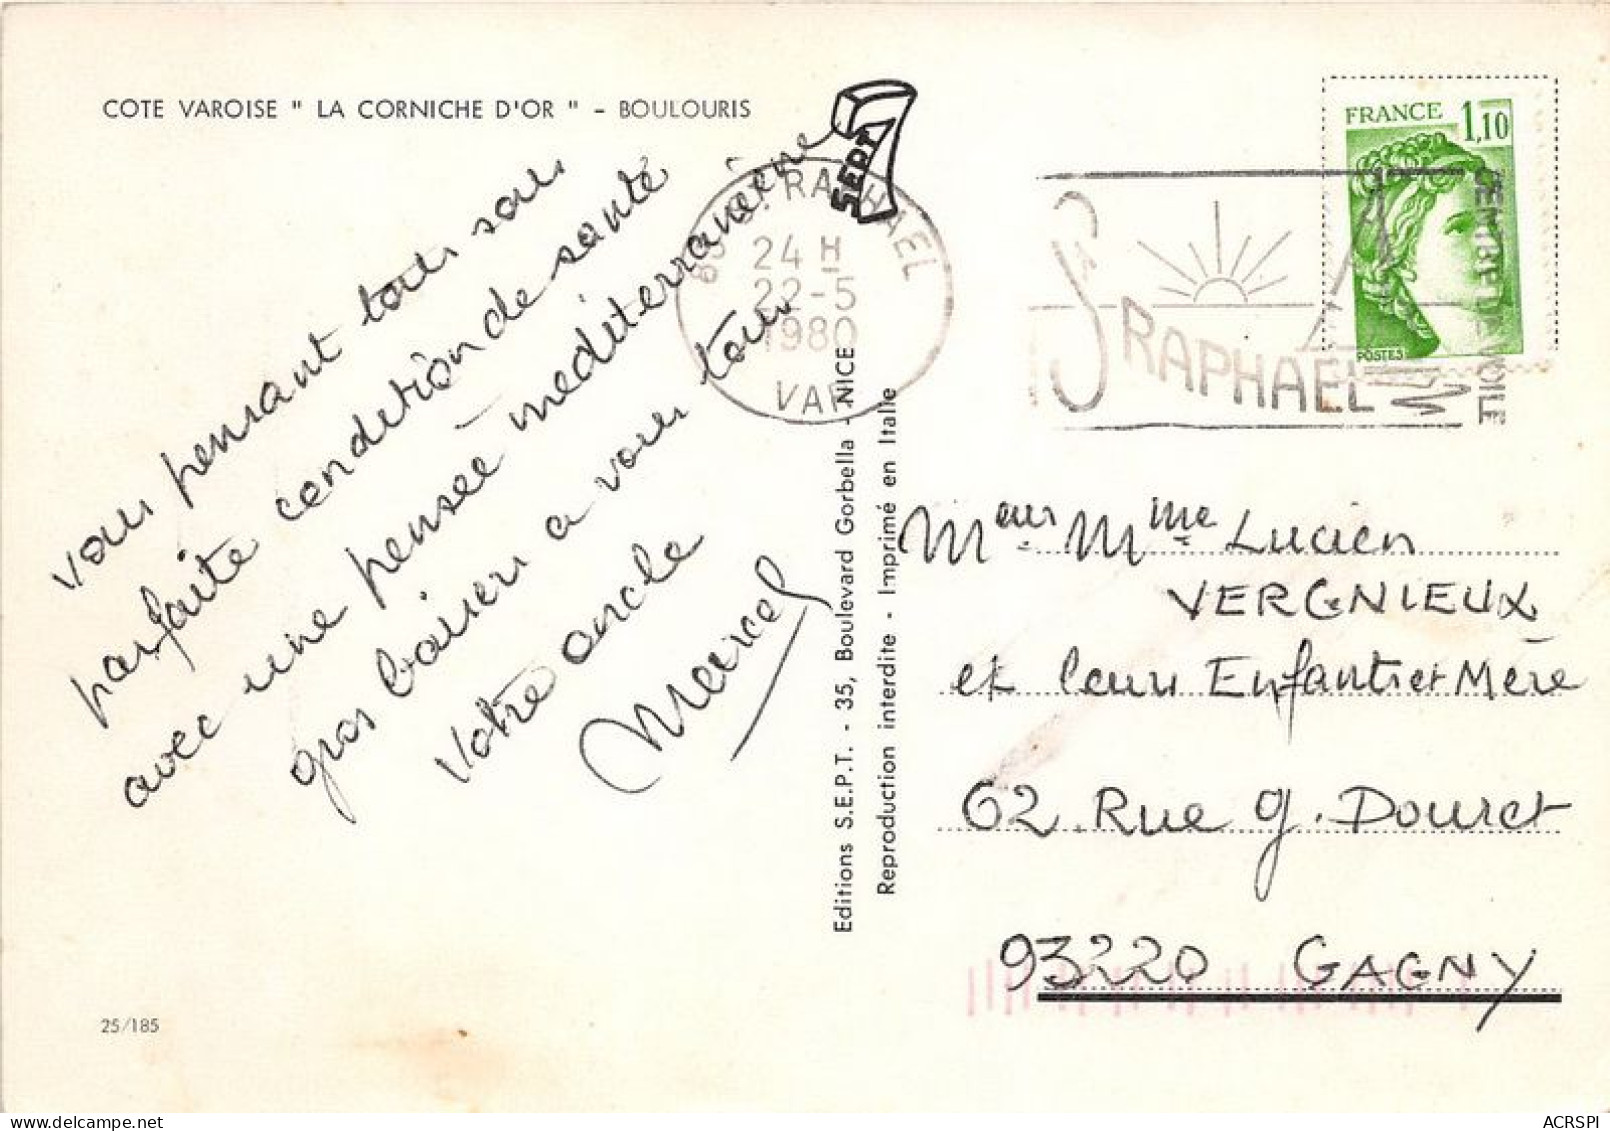 COTE VAROISE " LA CORNICHE D'OR " - BOULOURIS
vous pensant tous sous
parfaite condition de santé
avec une pensée mediterranéene
gros baisers a vous tous
Votre oncle
Marcel
25/185
SEPT 7
83 ST RAPHAEL
24 H
22-5
1980
VAR
Editions S.E.P.T. - 35, Boulevard Gorbella - NICE
Reproduction interdite - Imprimé en Italie
ST RAPHAEL
CENTRE DE VOILE
FRANCE 1,10
POSTES
Meur Mme Lucien
VERGNIEUX
et leurs Enfants et Mère
62 Rue J. Dourct
93220 GAGNY
ACRSPI